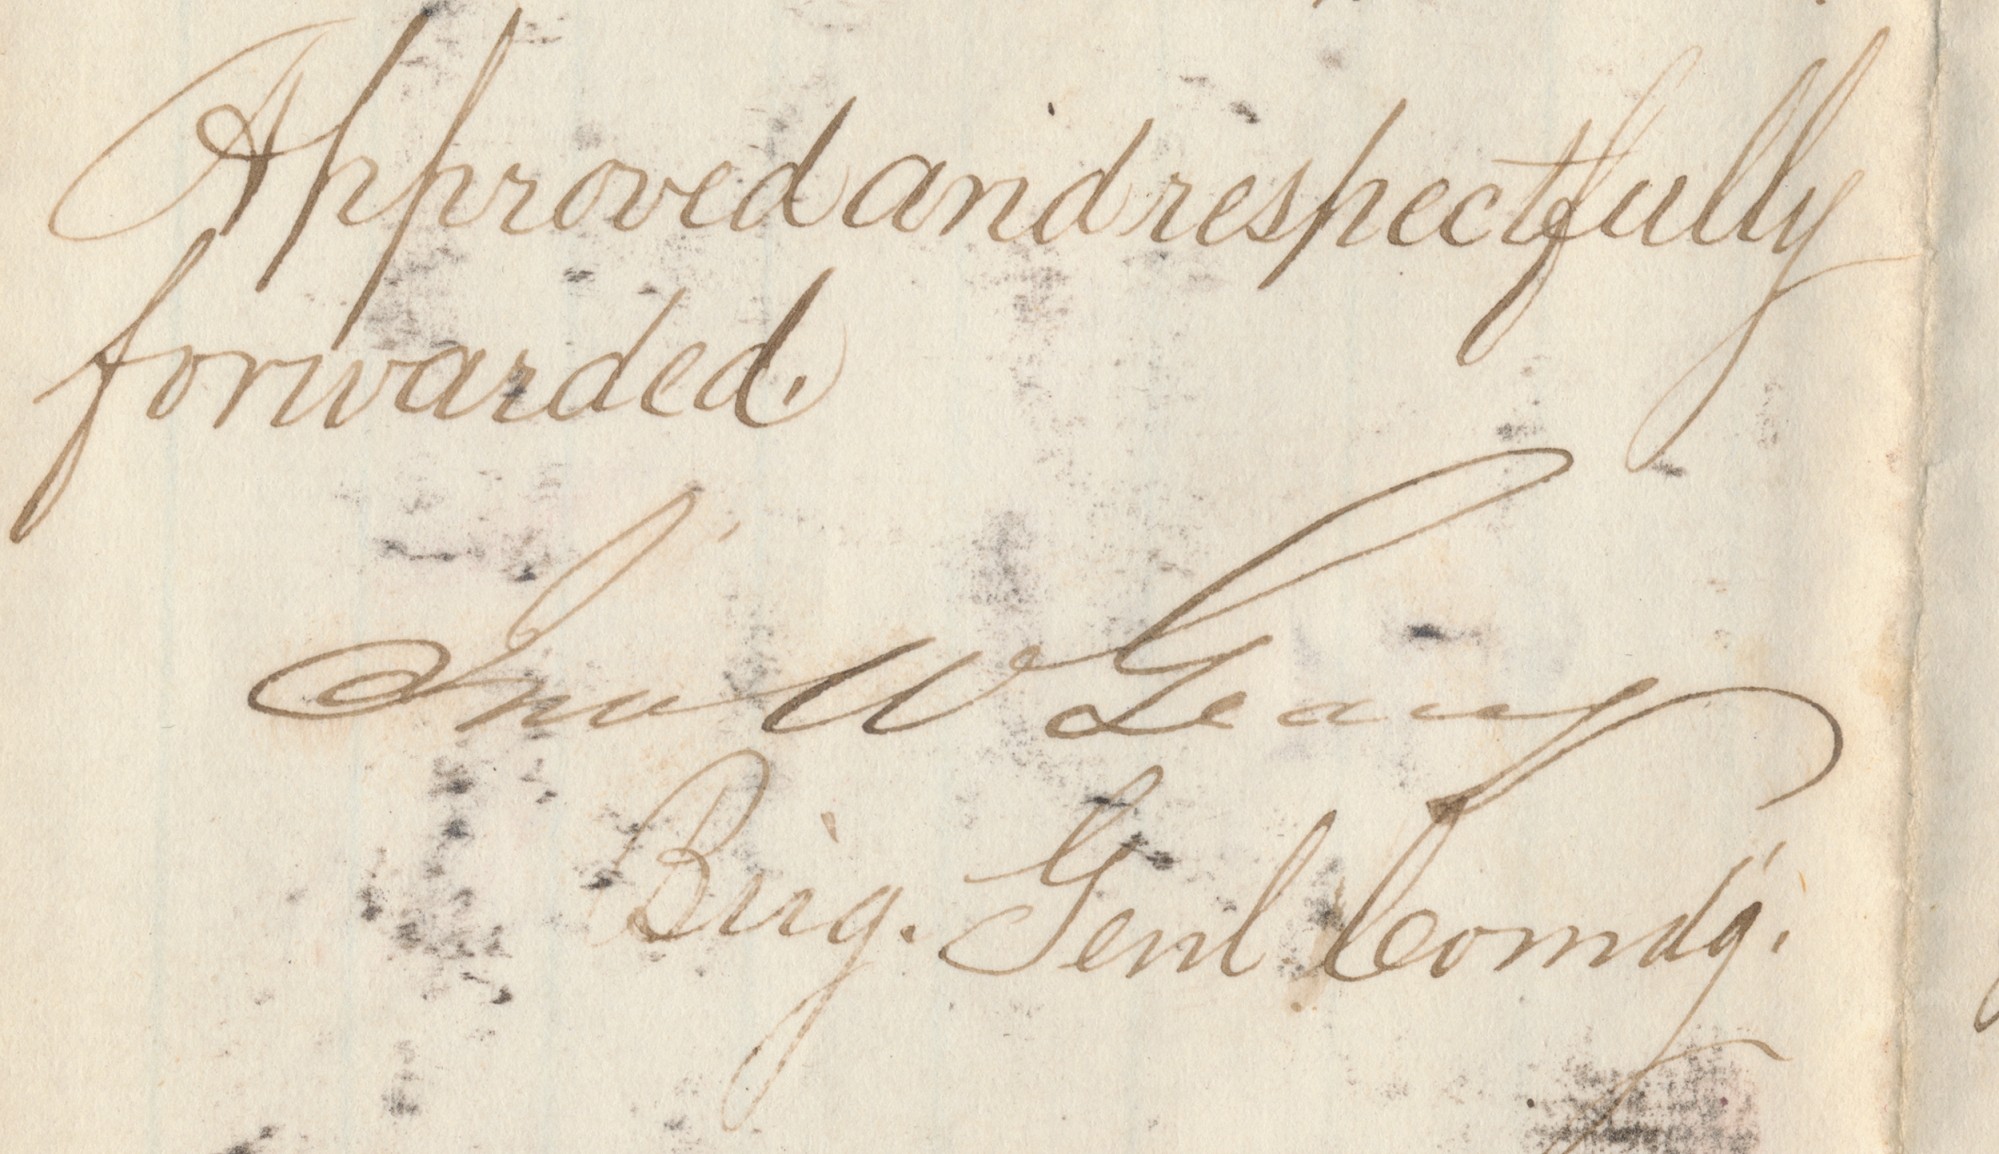 Approved and respectfully
forwarded.
Jno W Geary
Brig. Genl Comdg.